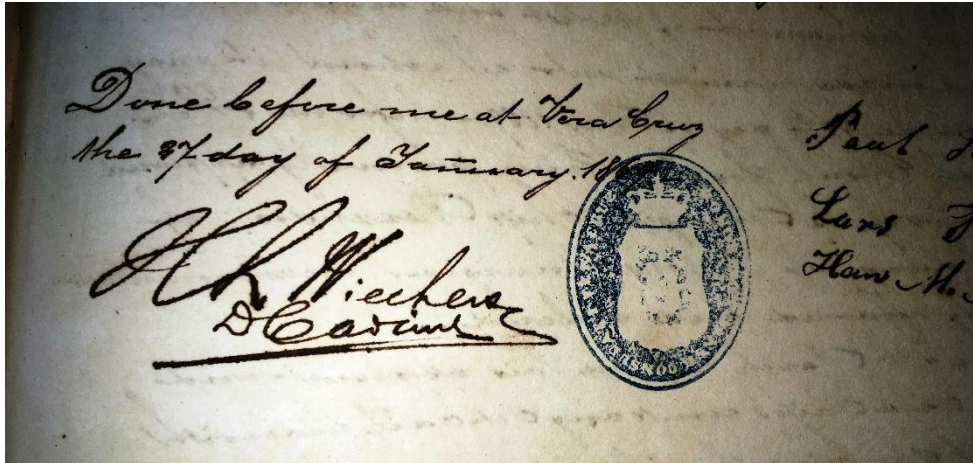 Done before me at Vera Cruz
the 27 day of January 18
H L Wiechers
Paul
Lars
Han M.